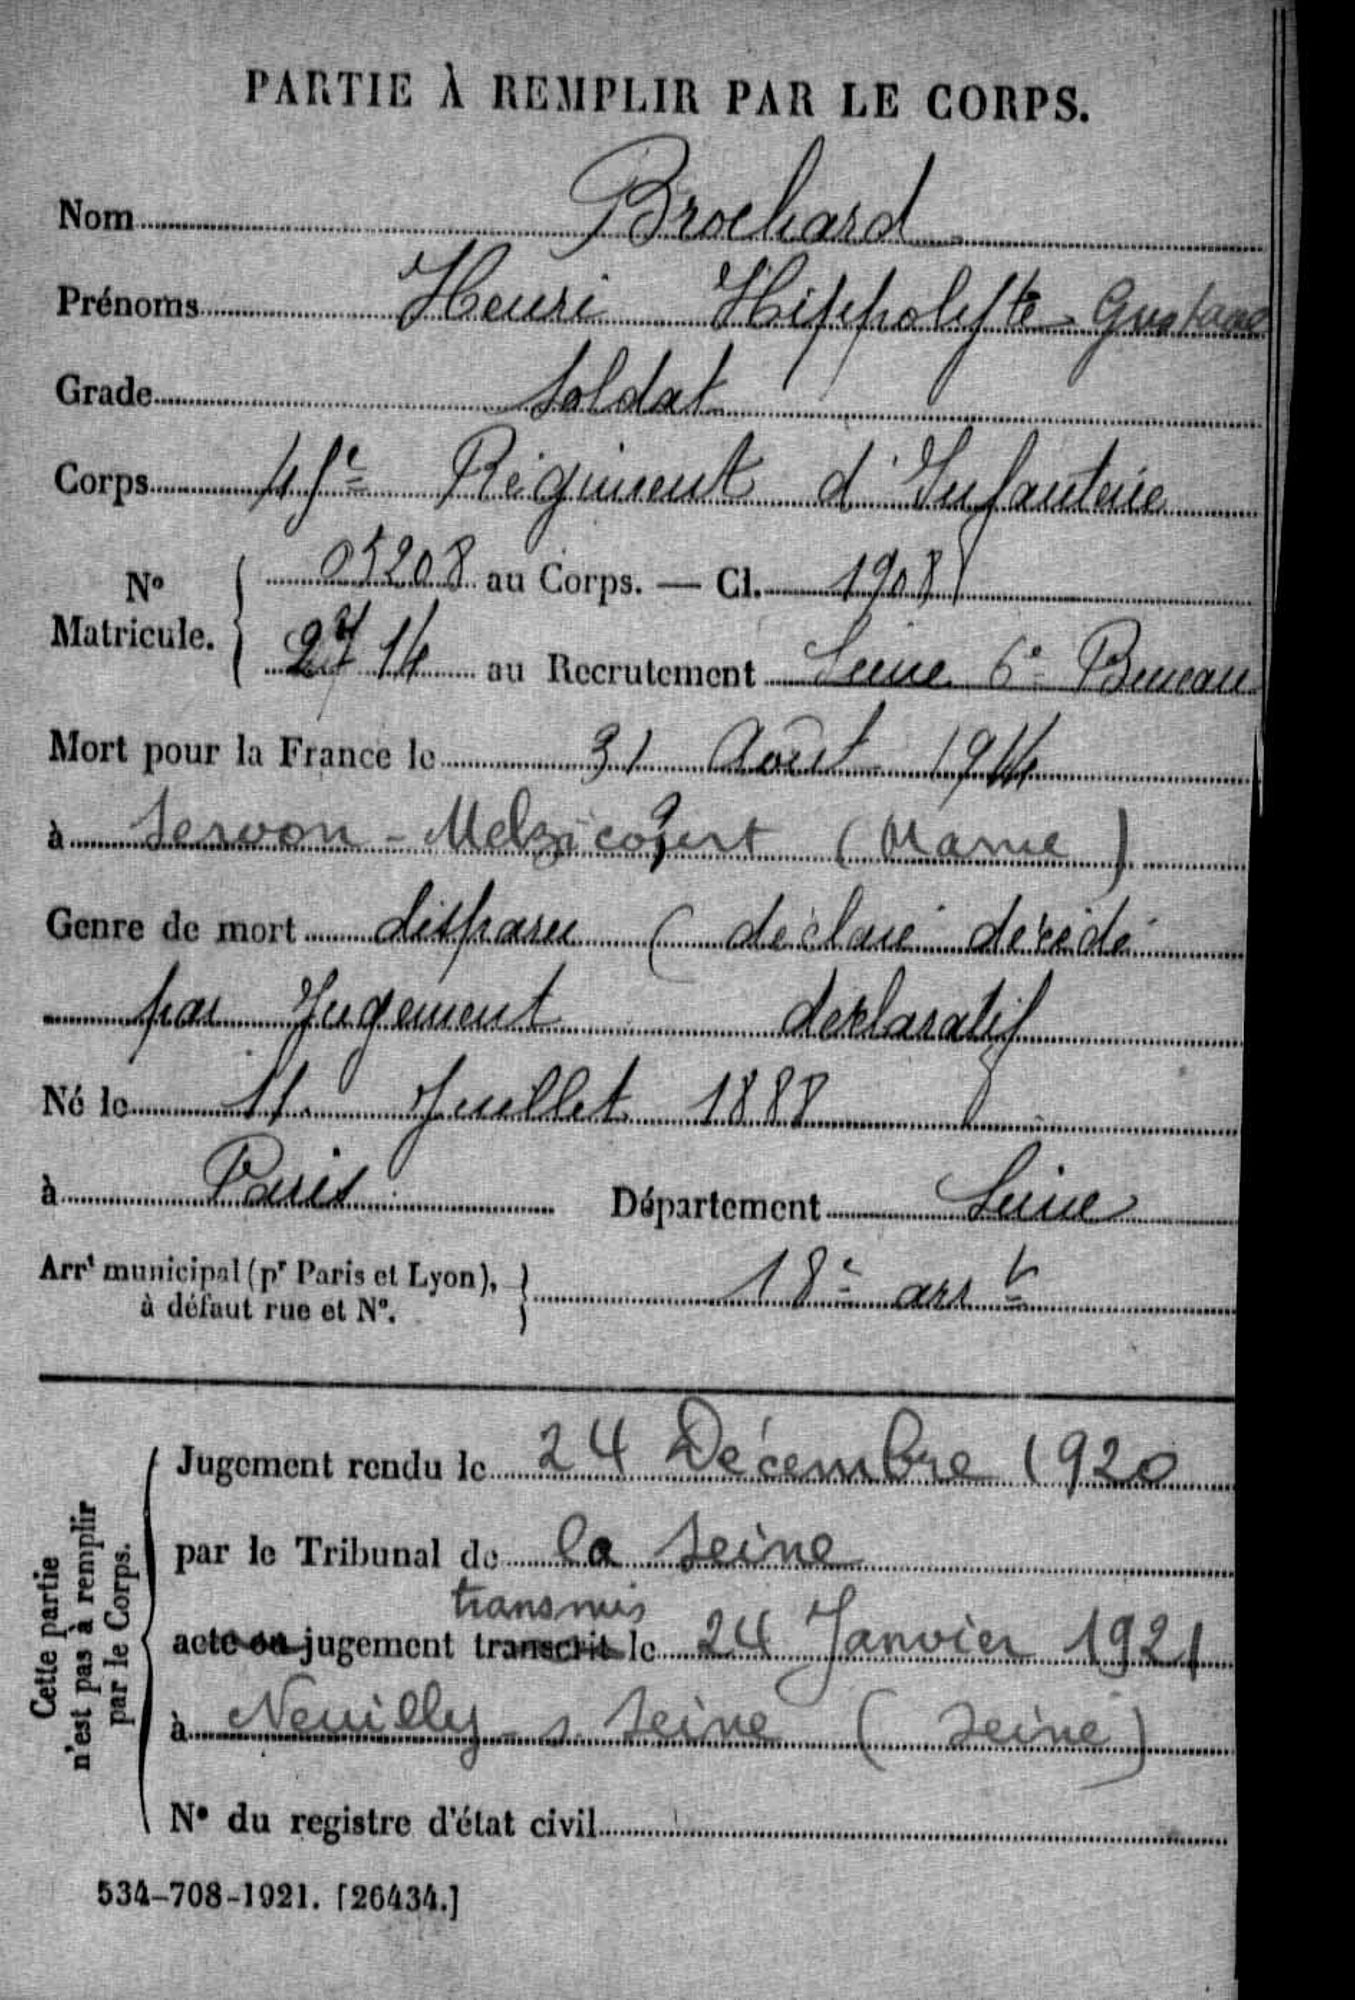 PARTIE À REMPLIR PAR LE CORPS.
Nom Brochard
Prénoms Henri Hippolyte Gustave
Grade Soldat
Corps 45e Régiment d'Infanterie
No Matricule. 05208 au Corps. — Cl. 1908
2714 au Recrutement Seine 6e Bureau
Mort pour la France le 31 Août 1914
à Servon-Melzicourt (Marne)
Genre de mort disparu (déclaré décédé
par Jugement déclaratif
Né le 11 Juillet 1888
à Paris Département Seine
Arrt municipal (pr Paris et Lyon), à défaut rue et No. 18e arrt
Cette partie n'est pas à remplir par le Corps.
Jugement rendu le 24 Décembre 1920
par le Tribunal de la Seine
transmis
acte ou jugement transcrit le 24 Janvier 1921
à Neuilly-s-Seine (Seine)
No du registre d'état civil
534-708-1921. [26434.]